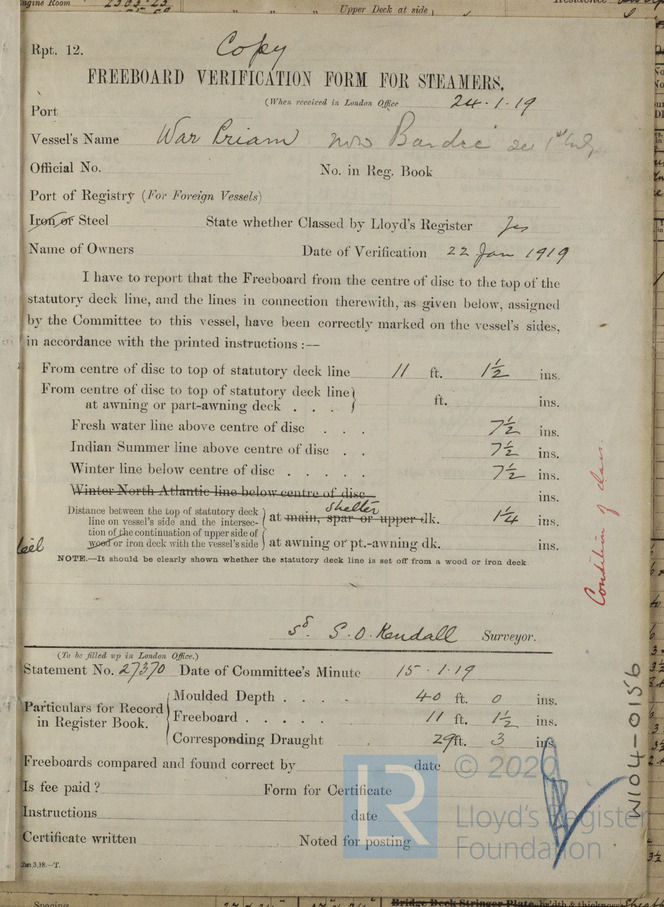 Engine Room
Upper Deck at side
Rpt. 12.
Copy
FREEBOARD VERIFICATION FORM FOR STEAMERS.
(When received in London Office 24.1.19
Port
Vessel's Name War Priam now Bardic
Official No. No. in Reg. Book
Port of Registry (For Foreign Vessels)
Iron or Steel State whether Classed by Lloyd's Register Yes
Name of Owners Date of Verification 22 Jan 1919
I have to report that the Freeboard from the centre of disc to the top of the
statutory deck line, and the lines in connection therewith, as given below, assigned
by the Committee to this vessel, have been correctly marked on the vessel's sides,
in accordance with the printed instructions :—
From centre of disc to top of statutory deck line 11 ft. 1½ ins.
From centre of disc to top of statutory deck line
at awning or part-awning deck . . . ft. ins.
Fresh water line above centre of disc . . . 7½ ins.
Indian Summer line above centre of disc . . 7½ ins.
Winter line below centre of disc . . . . . 7½ ins.
Winter North Atlantic line below centre of disc ins.
Distance between the top of statutory deck
line on vessel's side and the intersec-
tion of the continuation of upper side of
wood or iron deck with the vessel's side
shelter
at main, spar or upper dk. 1¼ ins.
at awning or pt.-awning dk. ins.
NOTE.—It should be clearly shown whether the statutory deck line is set off from a wood or iron deck
Condition of class.
sd. S.O. Kendall Surveyor.
(To be filled up in London Office.)
Statement No. 27370 Date of Committee's Minute 15.1.19
Particulars for Record
in Register Book.
Moulded Depth . . . . 40 ft. 0 ins.
Freeboard . . . . . 11 ft. 1½ ins.
Corresponding Draught . 29 ft. 3 ins.
Freeboards compared and found correct by date
Is fee paid ? Form for Certificate
Instructions date
Certificate written Noted for posting
W104-0156
LR
© 2020
Lloyd's Register
Foundation
Spacing
Bridge Deck Stringer Plate, br'dth & thickness